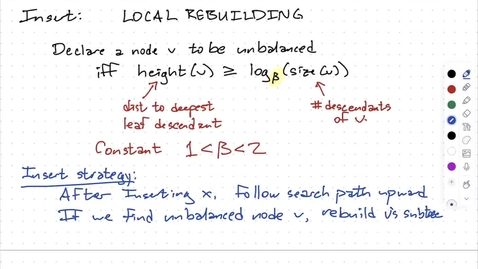 Insert: LOCAL REBUILDING
Declare a node v to be unbalanced
iff height(v) ≥ logβ(size(v))
dist to deepest
leaf descendant
# descendants
of v.
Constant 1 < β < 2
Insert strategy:
After Inserting x, follow search path upward
If we find unbalanced node v, rebuild v's subtree